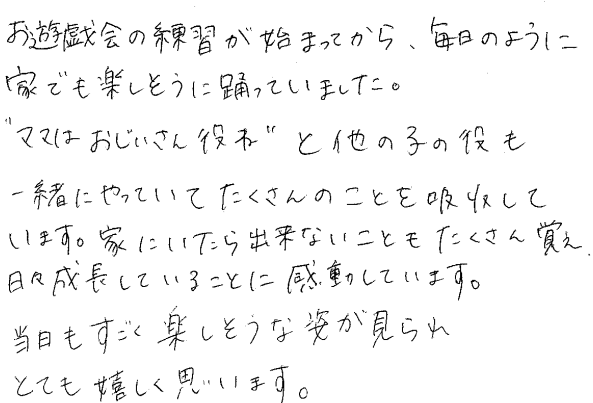 お遊戯会の練習が始まってから、毎日のように
家でも楽しそうに踊っていました。
"ママはおじいさん役ね"と他の子の役も
一緒にやっていてたくさんのことを吸収して
います。家にいたら出来ないこともたくさん覚え、
日々成長していることに感動しています。
当日もすごく楽しそうな姿が見られ
とても嬉しく思います。